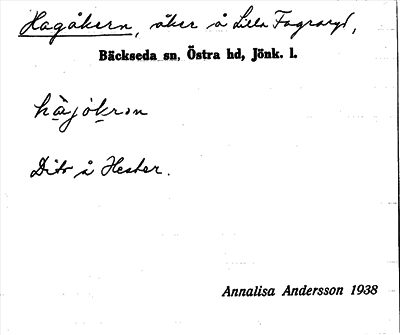 Hagåkern, åker å Lilla Fagraryd,
Bäckseda sn, Östra hd, Jönk. l.
hàjókrɔn
Dito å Hester.
Annalisa Andersson 1938